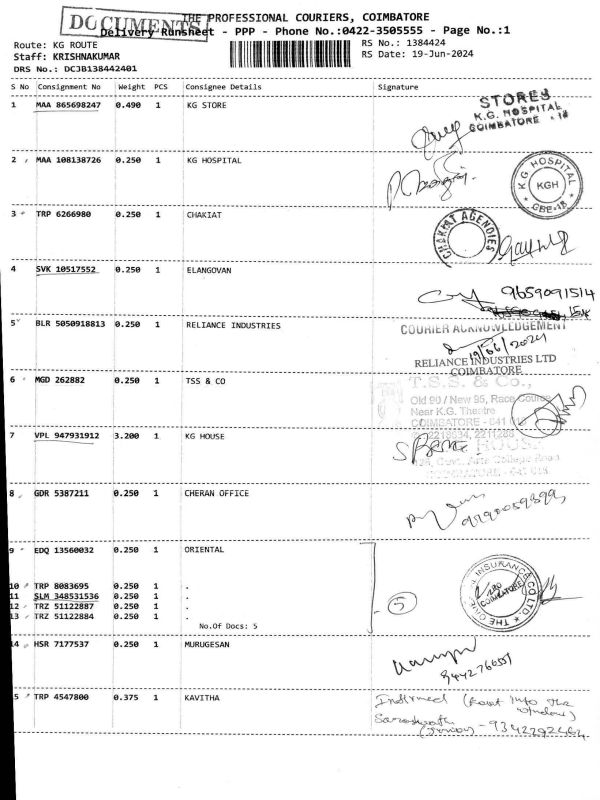 DOCUMENTS
THE PROFESSIONAL COURIERS, COIMBATORE
Delivery Runsheet - PPP - Phone No.:0422-3505555 - Page No.:1
Route: KG ROUTE
RS No.: 1384424
Staff: KRISHNAKUMAR
RS Date: 19-Jun-2024
DRS No.: DCJB138442401
S No Consignment No Weight PCS Consignee Details Signature
1 MAA 865698247 0.490 1 KG STORE
STORES
K.G. HOSPITAL
COIMBATORE - 18
2 MAA 108138726 0.250 1 KG HOSPITAL
KG HOSPITAL
KGH
CBE-18
3 TRP 6266980 0.250 1 CHAKIAT
CHAKIAT AGENCIES
4 SVK 10517552 0.250 1 ELANGOVAN
9659091514
5 BLR 5050918813 0.250 1 RELIANCE INDUSTRIES
COURIER ACKNOWLEDGEMENT
19/06/2024
RELIANCE INDUSTRIES LTD
COIMBATORE
6 MGD 262882 0.250 1 TSS & CO
T.S.S. & Co.,
Old 90 / New 95, Race Course
Near K.G. Theatre
COIMBATORE - 641 018
7 VPL 947931912 3.200 1 KG HOUSE
HOUSE
Govt. Arts College Road
COIMBATORE - 641 018
8 GDR 5387211 0.250 1 CHERAN OFFICE
9 EDQ 13560032 0.250 1 ORIENTAL
10 TRP 8083695 0.250 1 .
11 SLM 348531536 0.250 1 .
12 TRZ 51122887 0.250 1 .
13 TRZ 51122884 0.250 1 .
No.Of Docs: 5
5
INSURANCE CO LTD.
COIMBATORE
14 HSR 7177537 0.250 1 MURUGESAN
15 TRP 4547800 0.375 1 KAVITHA
window)